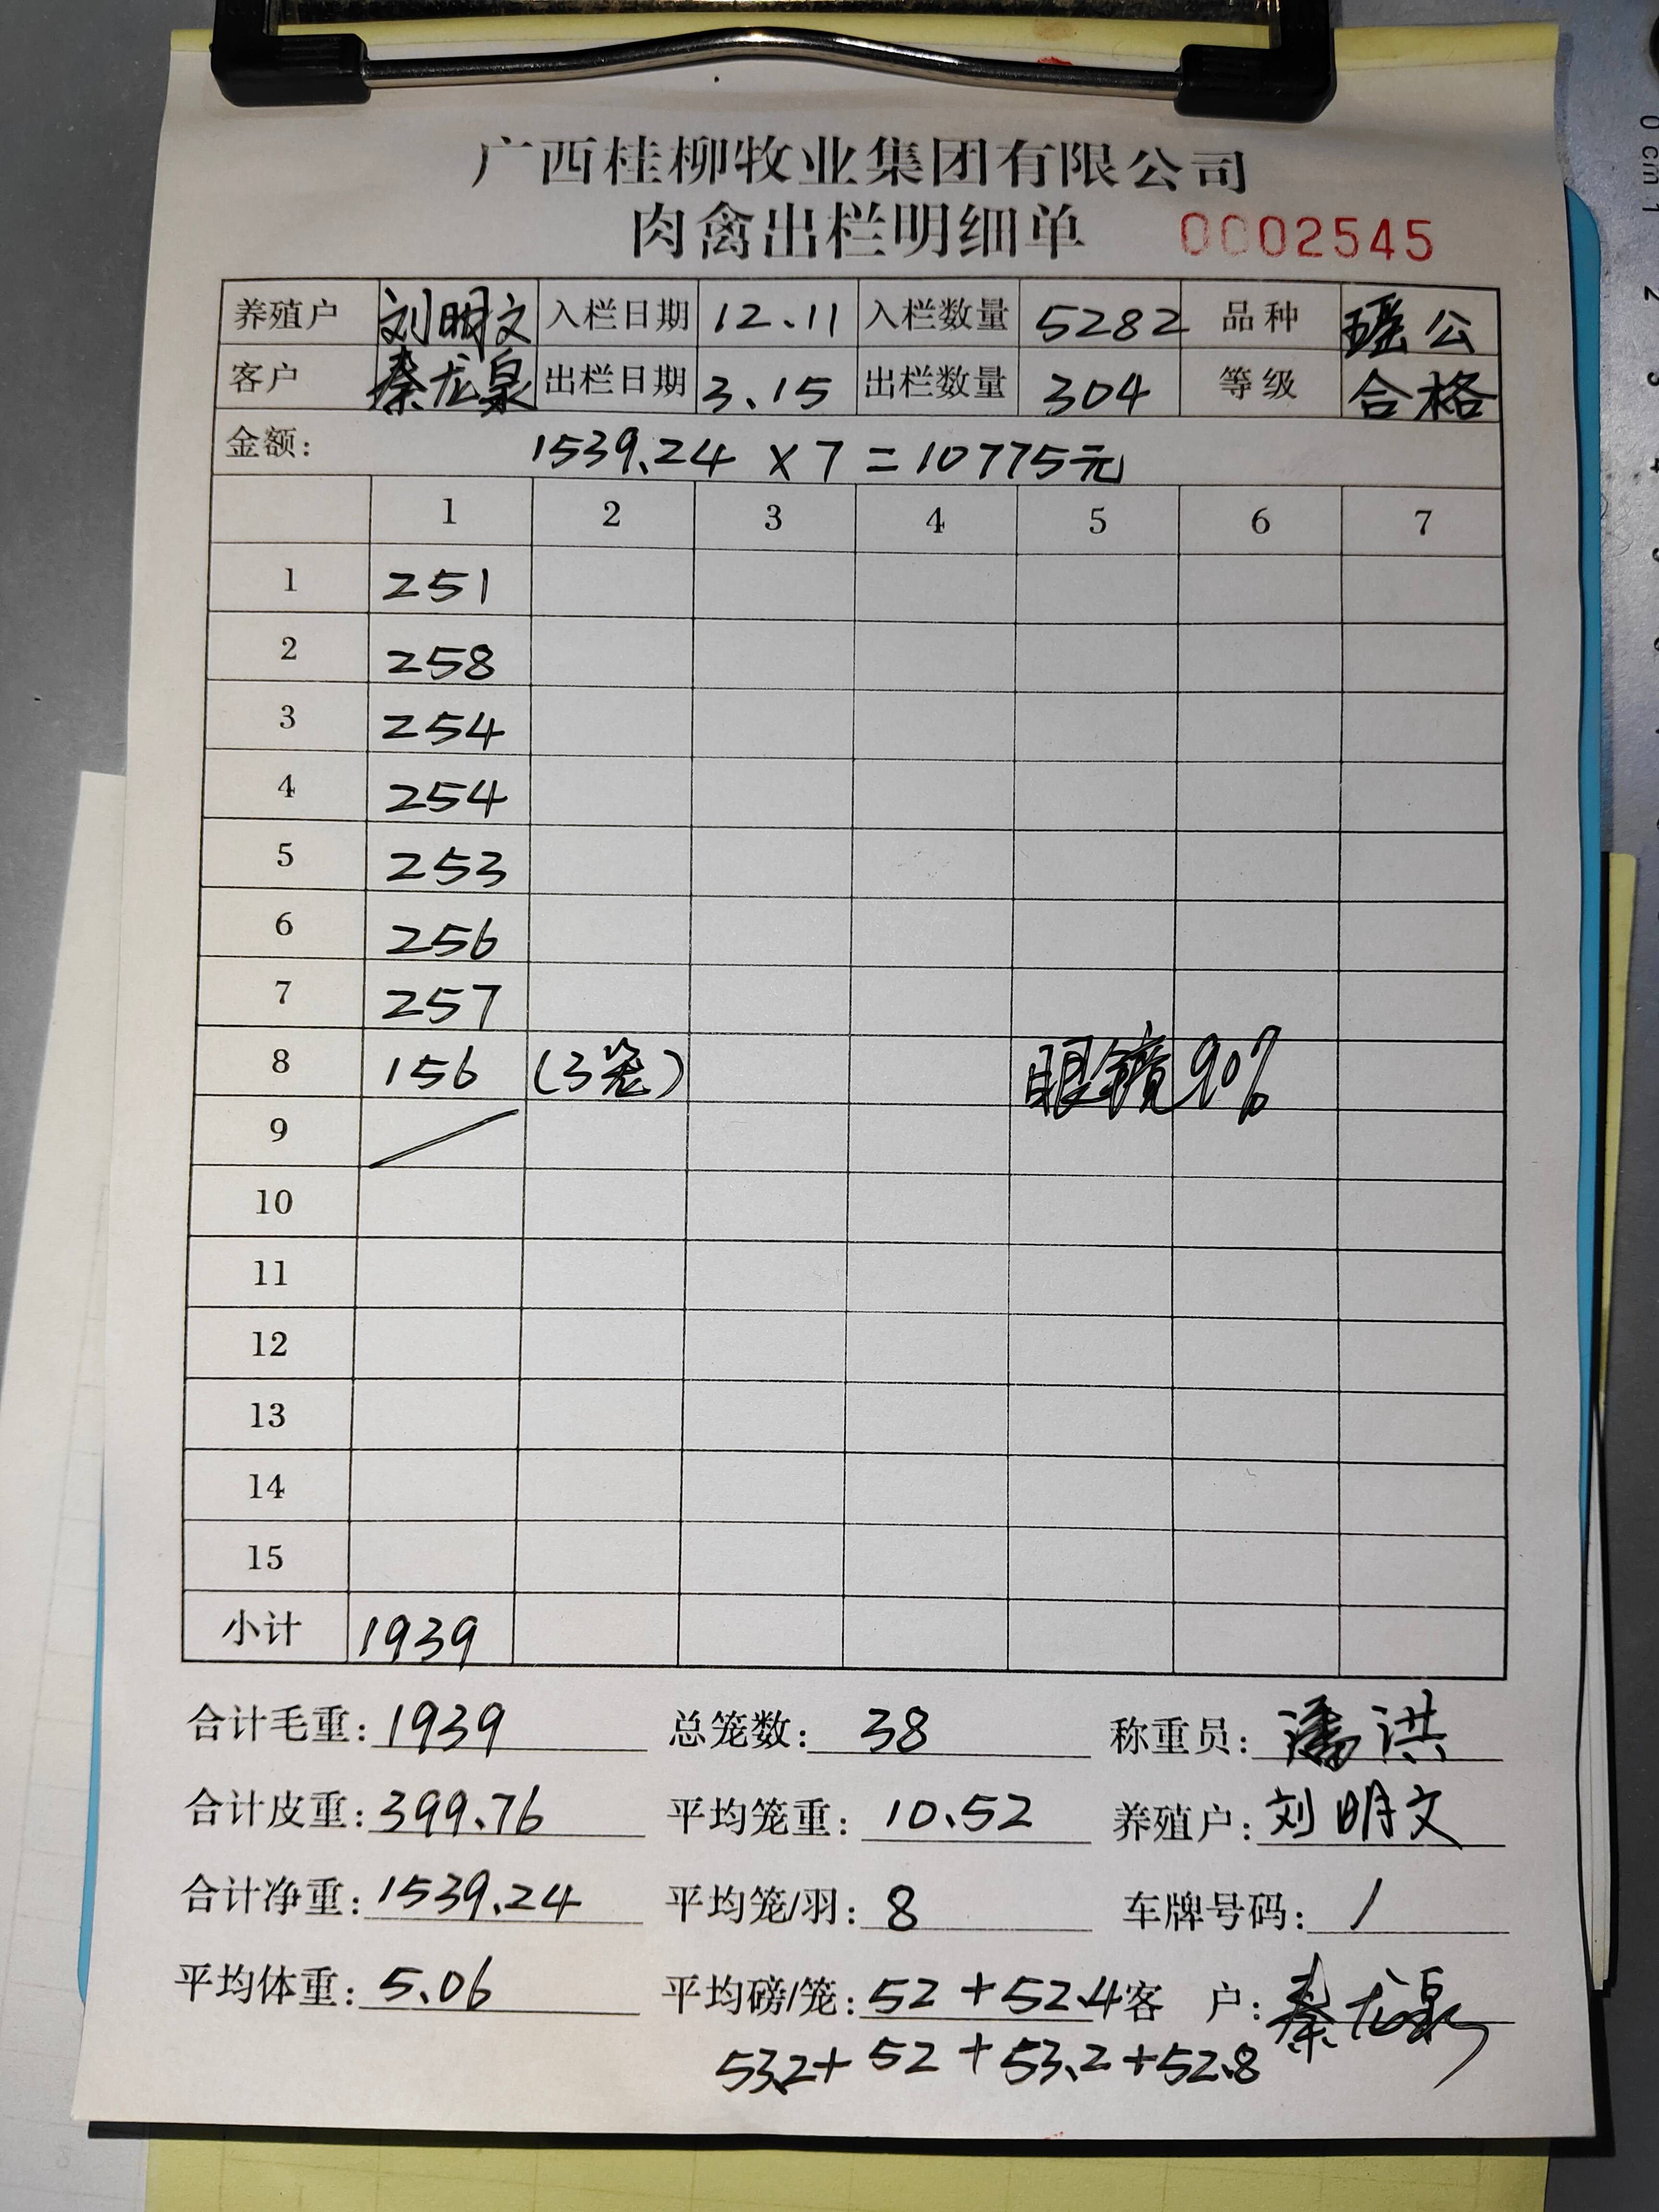 广西桂柳牧业集团有限公司
肉禽出栏明细单 0002545
养殖户 刘明文 入栏日期 12.11 入栏数量 5282 品种 瑶公
客户 秦龙泉 出栏日期 3.15 出栏数量 304 等级 合格
金额: 1539.24 × 7 = 10775元
1 2 3 4 5 6 7
1 251
2 258
3 254
4 254
5 253
6 256
7 257
8 156 (3笼) 眼镜90%
9
10
11
12
13
14
15
小计 1939
合计毛重: 1939 总笼数: 38 称重员: 潘洪
合计皮重: 399.76 平均笼重: 10.52 养殖户: 刘明文
合计净重: 1539.24 平均笼/羽: 8 车牌号码: /
平均体重: 5.06 平均磅/笼: 52 + 52.4 客户: 秦龙泉
53.2 + 52 + 53.2 + 52.8
0 cm 1 2 3 4 5